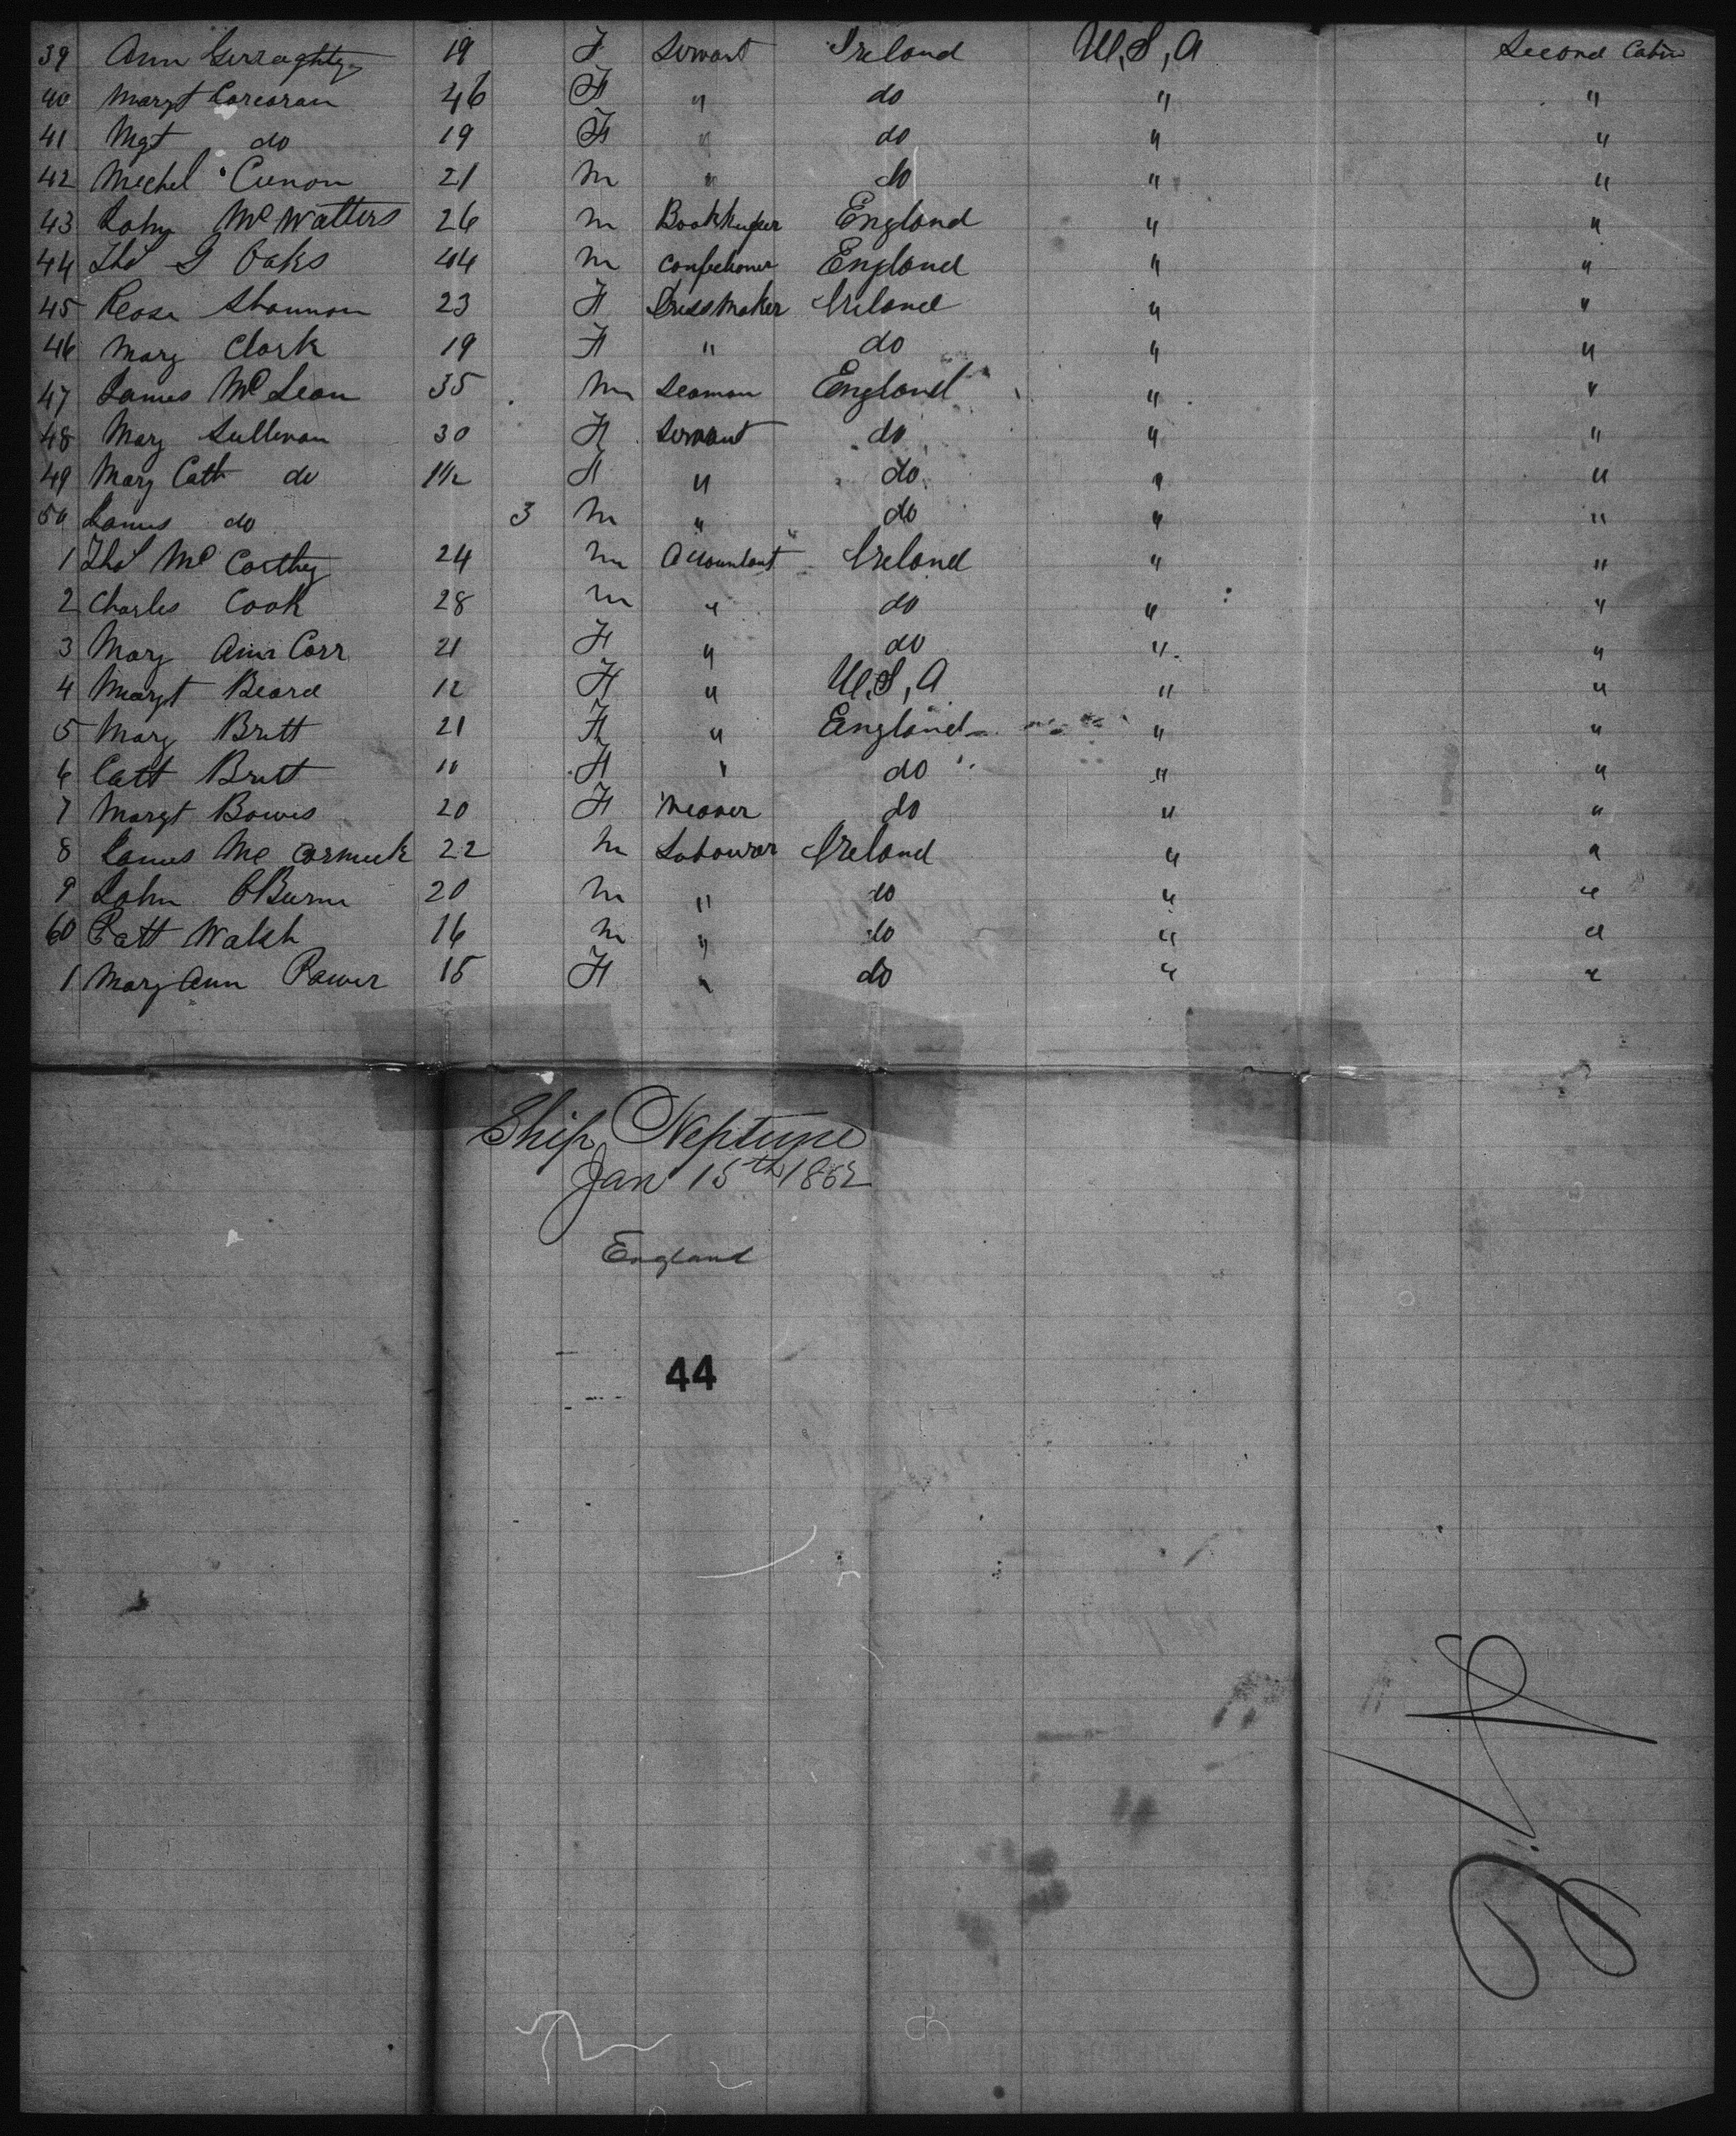 39 Ann Gerraghty 19 F Servant Ireland U,S,A Second Cabin
40 Margt Corcoran 46 F " do " "
41 Mgt do 19 F " do " "
42 Mechel Cunon 21 m " do " "
43 John McWatters 26 m Bookkeeper England " "
44 Thos G Oaks 44 m Confectioner England " "
45 Rose Shannon 23 F Dressmaker Ireland " "
46 Mary Clark 19 F " do " "
47 James McLean 35 m Seaman England " "
48 Mary Sullivan 30 F Servant do " "
49 Mary Cath do 1½ F " do " "
50 James do 3 m " do " "
1 Thos McCarthy 24 m Accountant Ireland " "
2 Charles Cook 28 m " do " "
3 Mary Ann Carr 21 F " do " "
4 Margt Beard 12 F " U,S,A " "
5 Mary Britt 21 F " England " "
6 Catt Britt 11 F " do " "
7 Margt Bowes 20 F Weaver do " "
8 James McCormick 22 m Labourer Ireland " "
9 John OBurn 20 m " do " "
60 Patt Walsh 16 m " do " "
1 Mary Ann Power 15 F " do " "
Ship Neptune
Jan 15th 1862
England
44